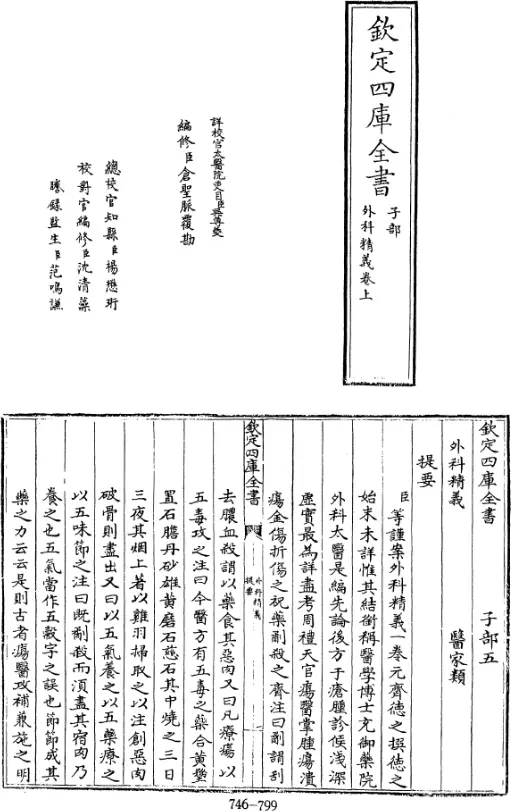 欽定四庫全書
子部
外科精義卷上
詳校官太醫院吏目臣
編修臣倉聖脈覆勘
總校官知縣臣楊懋珩
校對官編修臣沈清藻
謄錄監生臣范鳴謙
欽定四庫全書 子部五
外科精義 醫家類
提要
臣等謹案外科精義二卷元齊徳之撰徳之
始末未詳惟其結銜稱醫學博士充御藥院
外科太醫是編先論後方于瘡腫診候淺深
虛實最為詳盡考周禮天官瘍醫掌腫瘍潰
瘍金傷折傷之祝藥劀殺之齊注曰劀謂刮
欽定四庫全書
外科精義
提要
去膿血殺謂以藥食其惡肉又曰凡療瘍以
五毒攻之注曰今醫方有五毒之藥合黃堥
置石膽丹砂雄黃礜石慈石其中燒之三日
三夜其烟上著以雞羽掃取之以注創惡肉
破骨則盡出又曰以五氣養之以五藥療之
以五味節之注曰既劀殺而湏盡其宿肉乃
養之也五氣當作五穀字之誤也節節成其
藥之力云云是則古者瘍醫攻補兼施之明
746-799